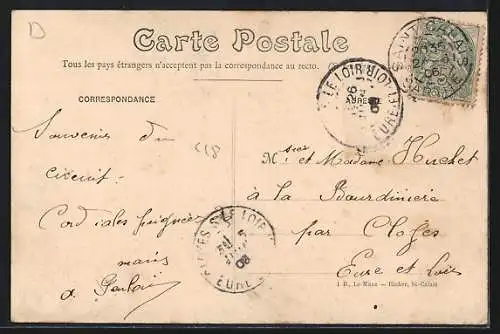 D
Carte Postale
Tous les pays étrangers n'acceptent pas la correspondance au recto.
CORRESPONDANCE
ADRESSE
SAINT-CALAIS
SARTHE
LE LOIR
EURE
06
LE LOIR
EURE
06
Souvenir du
circuit.
Cordiales poignées
mains
à
Mr et Madame Huchet
à la Bourdinière
par Cloyes
Eure et Loir
J. B., Le Mans - Hadier, St-Calais